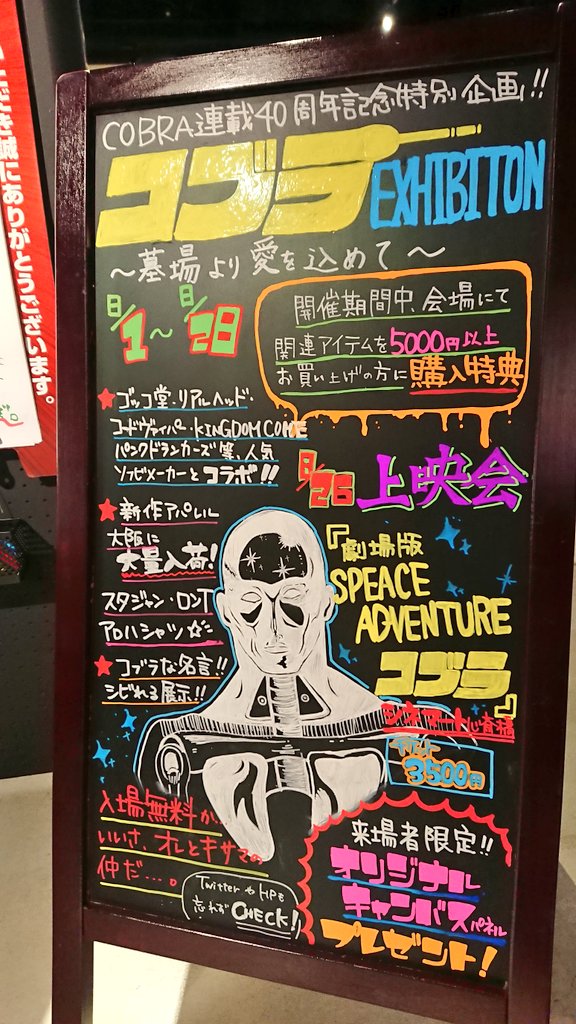 いただき誠にありがとうございます。
COBRA連載40周年記念特別企画!!
コブラ
EXHIBITON
〜墓場より愛を込めて〜
8/1〜8/28
開催期間中、会場にて
関連アイテムを5000円以上
お買い上げの方に購入特典
★ゴッコ堂・リアルヘッド・
コードヴァイパー・KINGDOM COME
パンクドランカーズ等、人気
ソフビメーカーとコラボ!!
★新作アパレル
大阪に
大量入荷!
スタジャン・ロンT
アロハシャツ☆
★コブラな名言!!
シビれる展示!!
8/26上映会
『劇場版
SPEACE
ADVENTURE
コブラ』
シネマート心斎橋
3500円
入場無料か、
いいさ、オレとキサマの
仲だ…。
TwitterやHPを
忘れずCHECK!
来場者限定!!
オリジナル
キャンバスパネル
プレゼント!